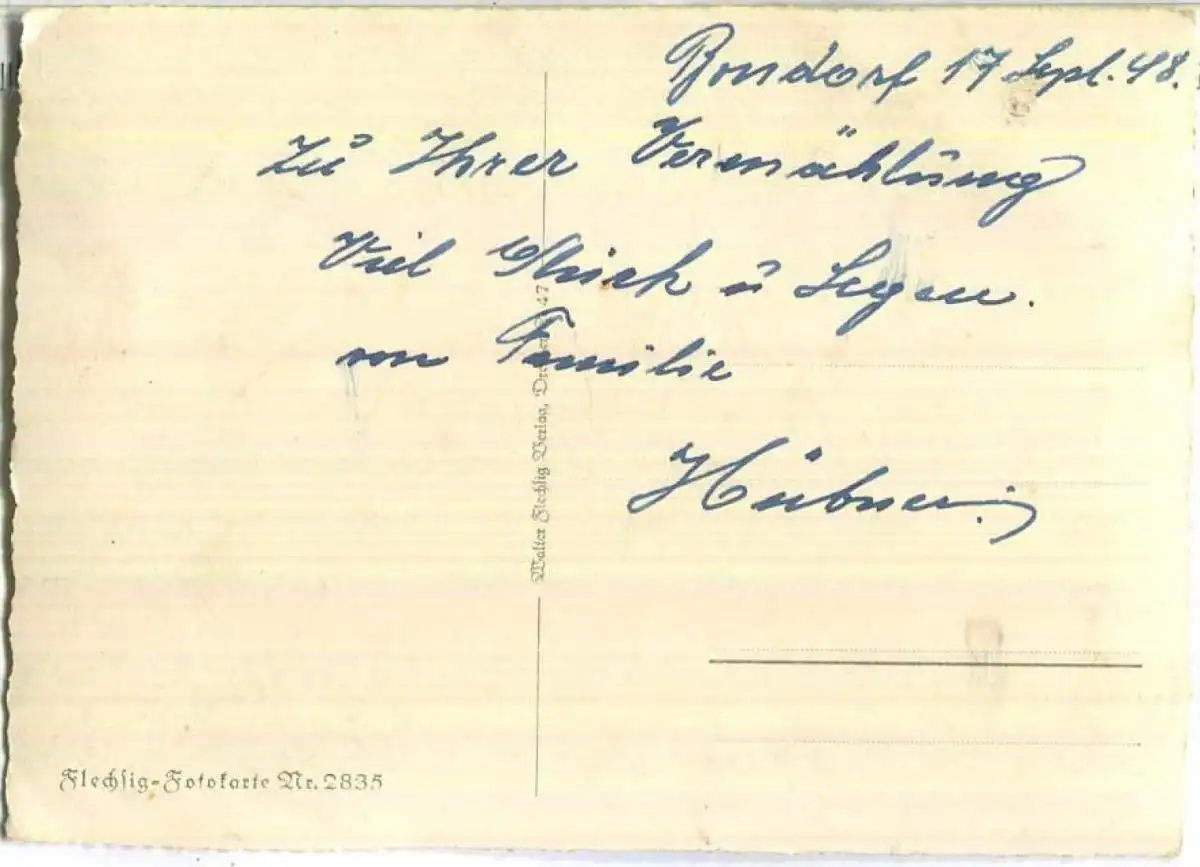 Bondorf 17 Sept. 48.
Zu Ihrer Vermählung
Viel Glück u Segen.
von Familie
Hübner.
Walter Flechsig Verlag, 47
Flechsig-Fotokarte Nr. 2835